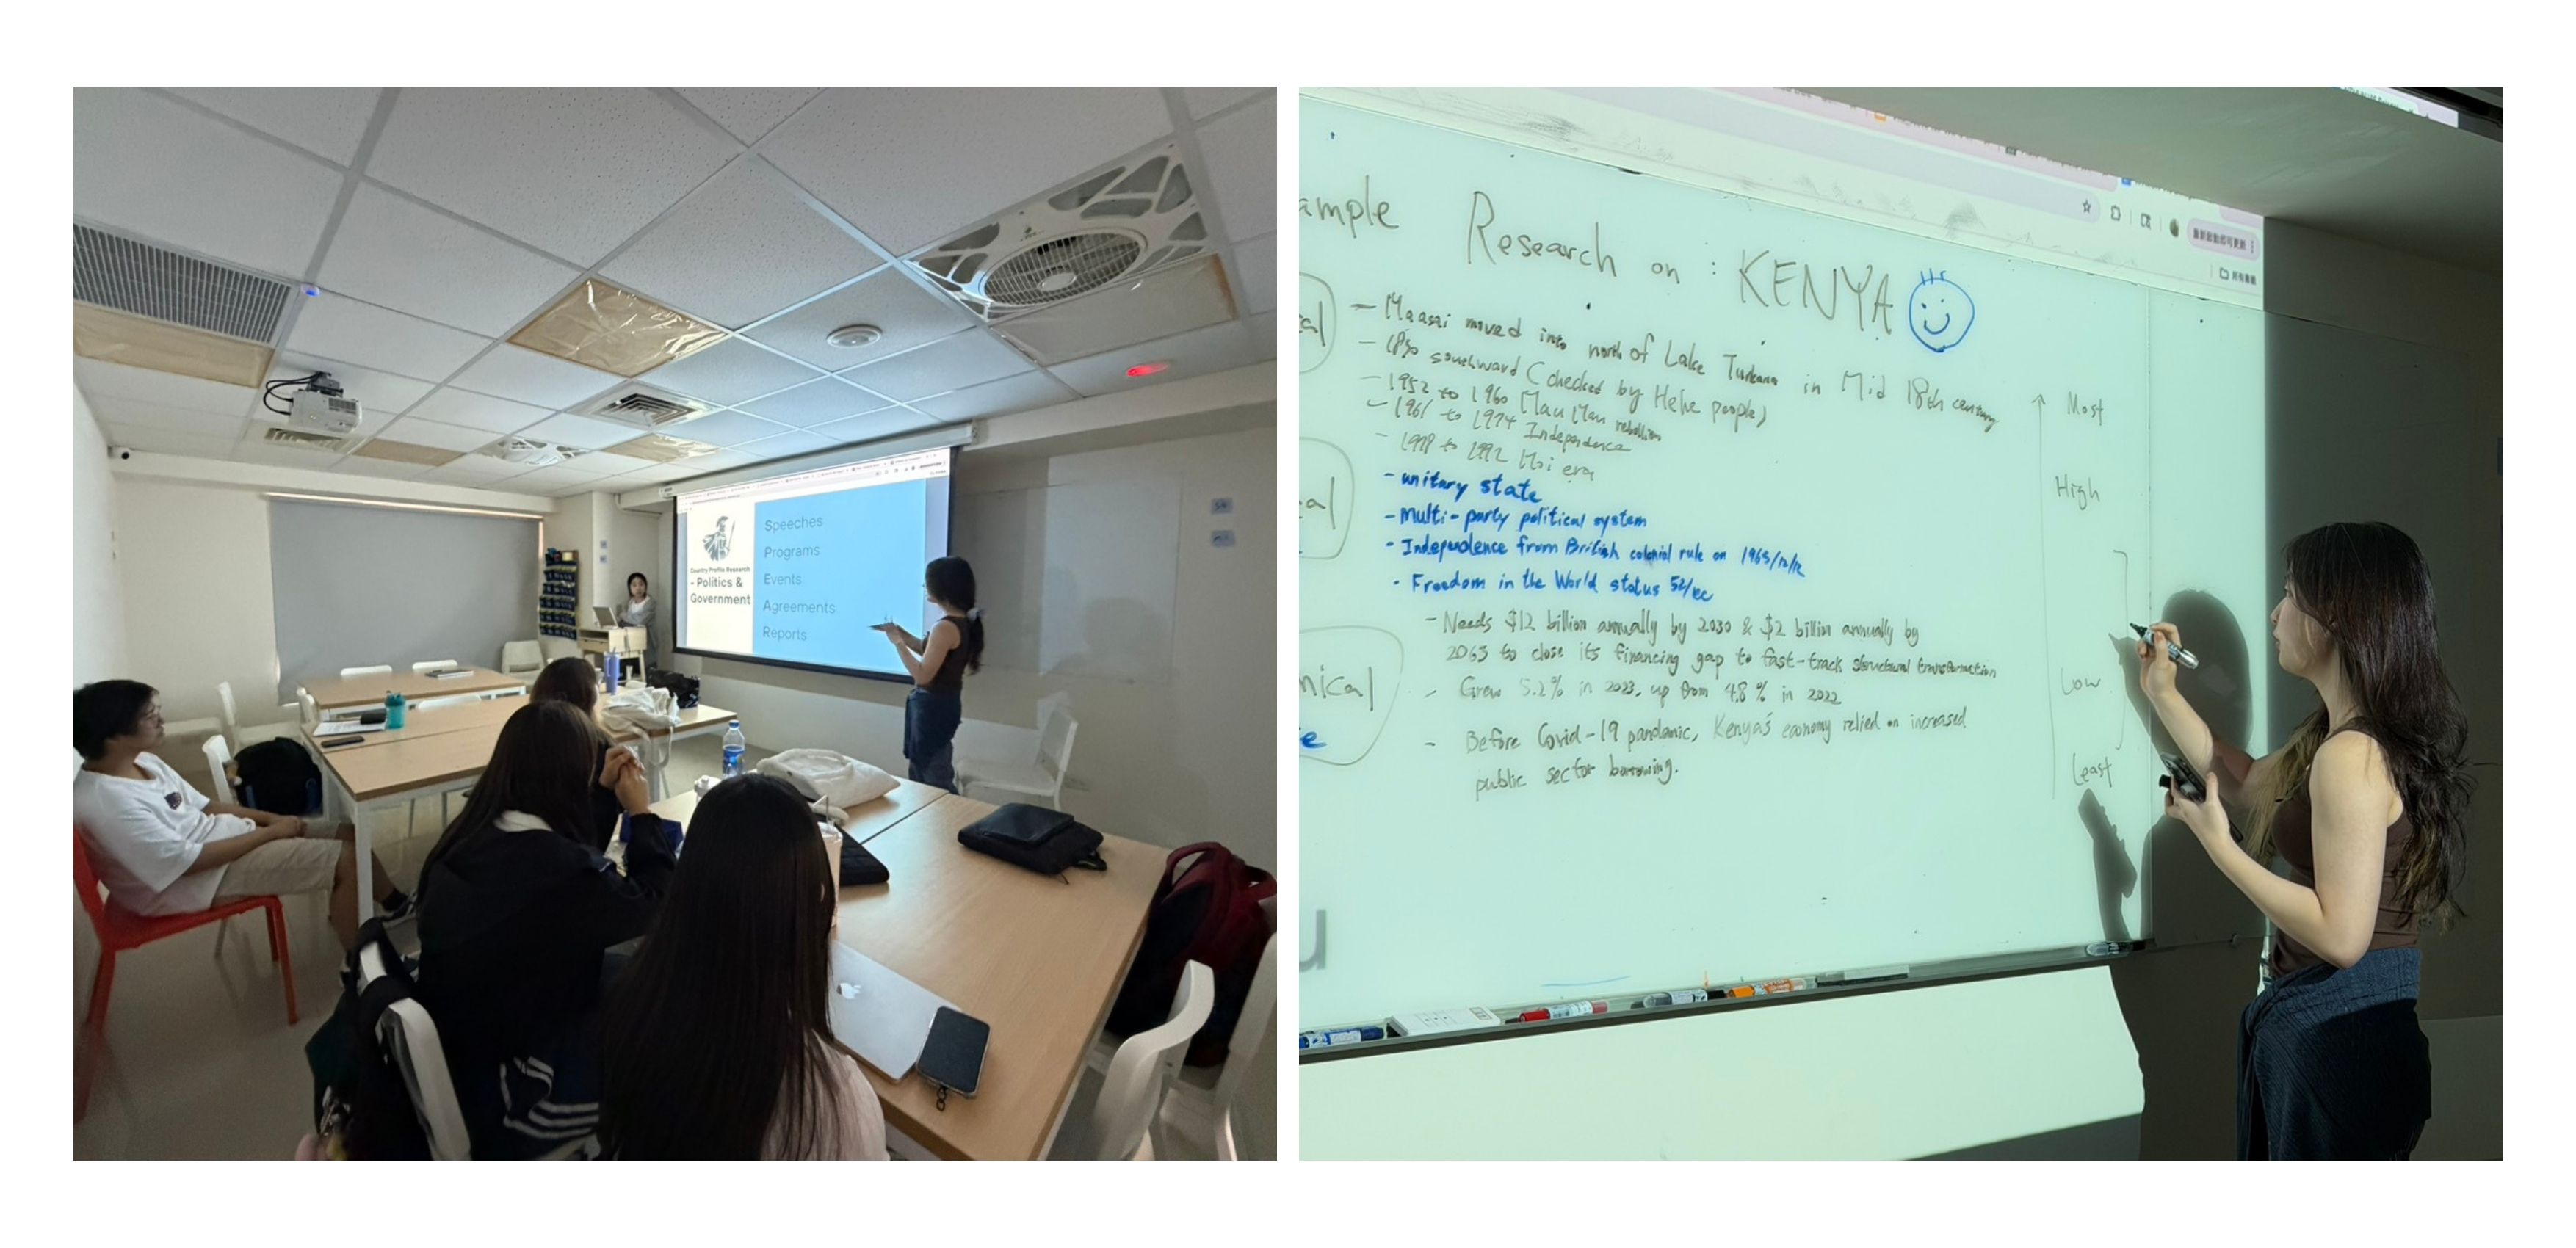 Country Profile Research
- Politics &
Government
Speeches
Programs
Events
Agreements
Reports
ample Research on : KENYA
- Maasai moved into north of Lake Turkana in Mid 18th century
- 1830 southward (checked by Hehe people)
- 1952 to 1960 Mau Mau rebellion
- 1961 to 1974 Independence
- 1978 to 1992 Moi era
- unitary state
- Multi-party political system
- Independence from British colonial rule on 1963/12/12
- Freedom in the World status 52/
- Needs $12 billion annually by 2030 & $2 billion annually by
2063 to close its financing gap to fast-track structural transformation
- Grew 5.2% in 2023, up from 4.8% in 2022
- Before Covid-19 pandemic, Kenya's economy relied on increased
public sector borrowing.
cal
al
mical
e
Most
High
Low
Least
重新啟動即可更新
所有書籤
u